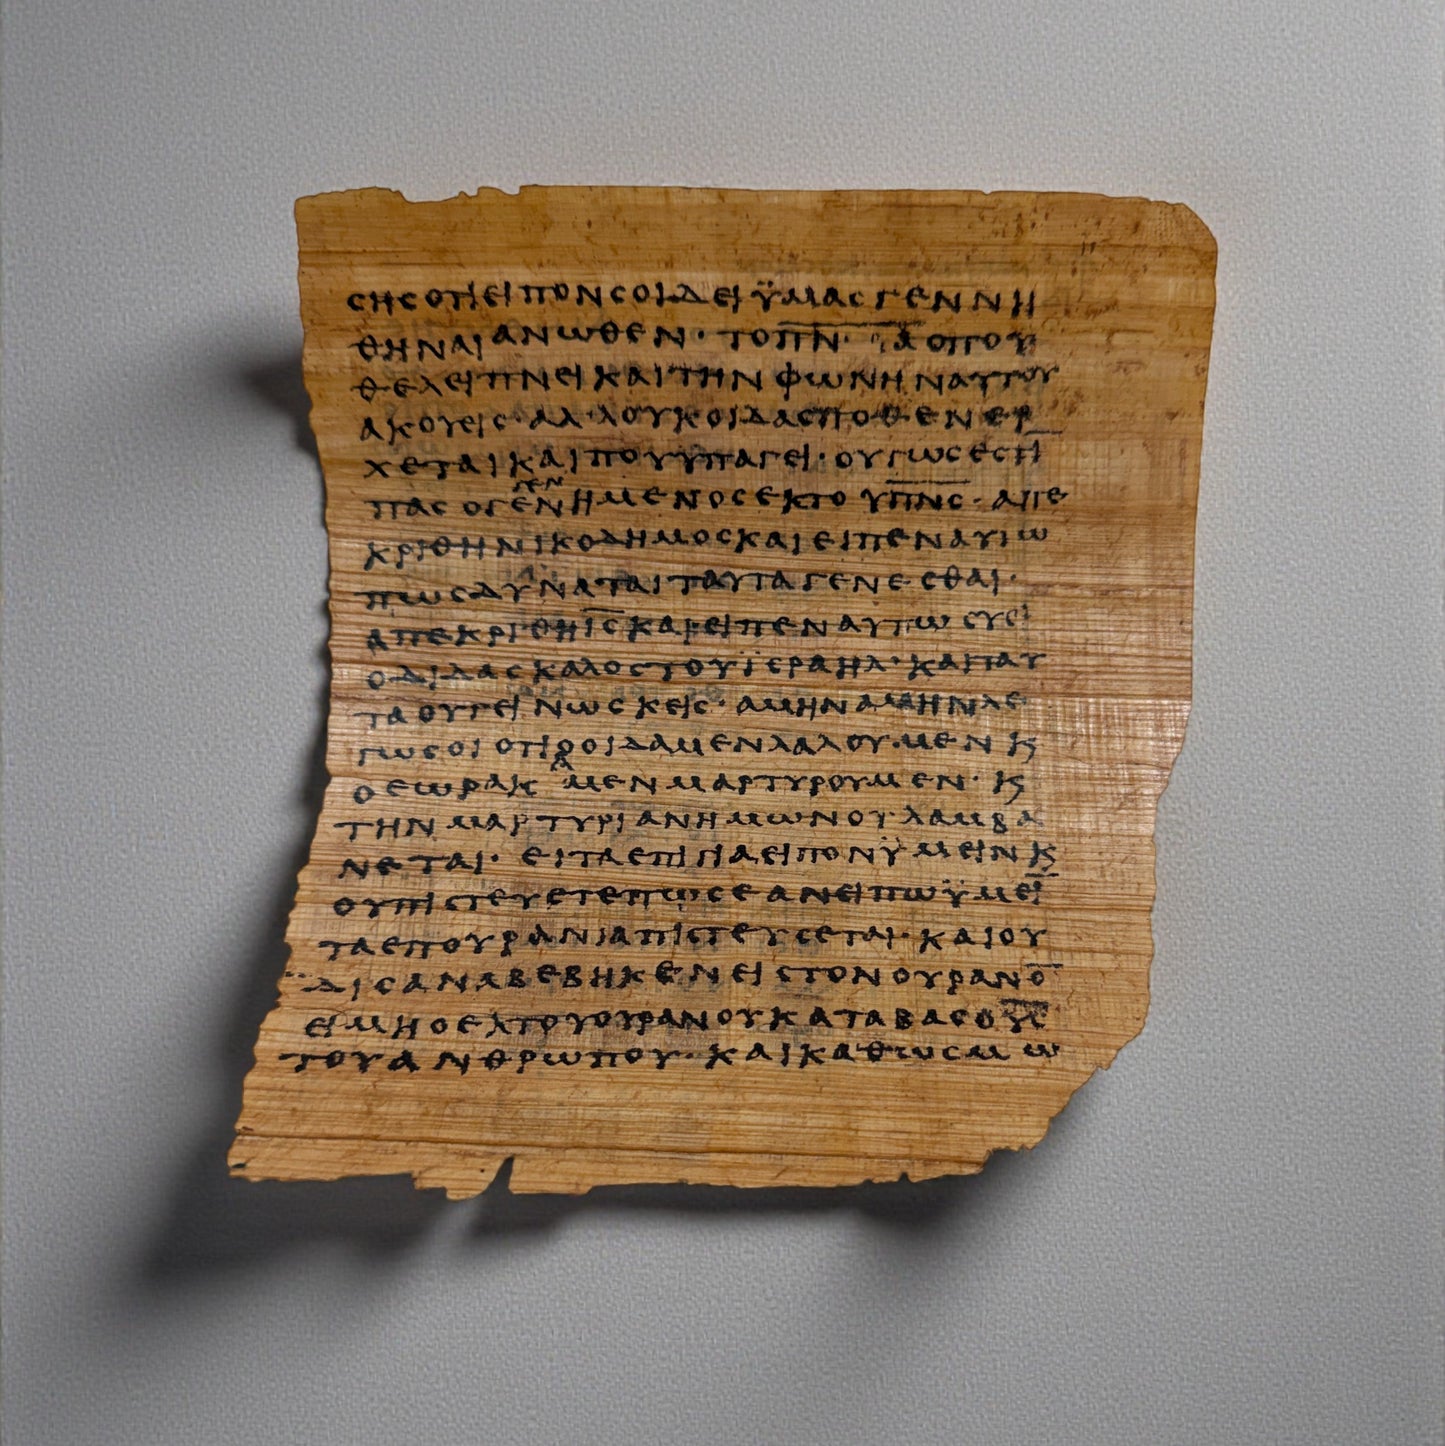 ϲηϲοτιειπονϲοιδειϋμαϲγεννη
θηναιανωθεν· το π̅ν̅· αοπου
θελειπνεικαιτηνφωνηναυτου
ακουειϲ· αλ·λουκοιδαϲποθενερ
χεταικαιπουϋπαγει· ουτωϲεϲτ̅ι̅
παϲογε`γεν´νημενοϲεκτουπ̅ν̅ϲ̅· απε
κριθηνικοδημοϲκαιειπεναυτω
πωϲδυναταιταυταγενεϲθαι·
απεκριθηι̅ϲ̅καιειπεναυτωϲυει
οδιδαϲκαλοϲτουϊϲραηλ· καιταυ
ταουγεινωϲκειϲ· αμηναμηνλε
γωϲοιοτιοοιδαμενλαλουμενκ
οεωρακ`α´μενμαρτυρουμεν· κ
τηνμαρτυριανημωνουλαμβα
νεται· ειταεπιγιαειπονϋμεινκ
ουπιϲτευετεπωϲεανειπωϋμει̅
ταεπουρανιαπιϲτευϲεται· καιου
διϲαναβεβηκενειϲτονουρανο̅
ειμηοεκτουουρανουκαταβαϲου̅ϲ̅
τουανθρωπου· καικαθωϲμω